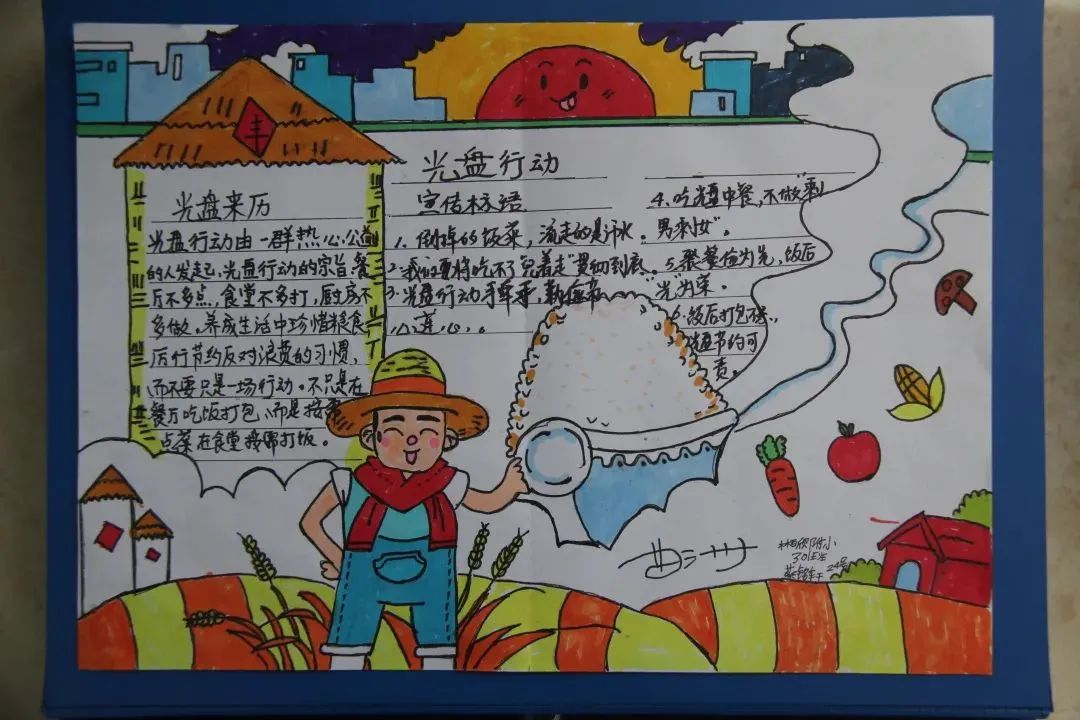 丰
光盘来历
光盘行动由一群热心公道
的人发起，光盘行动的宗旨：餐
厅不多点，食堂不多打，厨房不
多做。养成生活中珍惜粮食，
厉行节约反对浪费的习惯，
而不要只是一场行动。不只是在
餐厅吃饭打包，而是按需
点菜在食堂按需打饭。
光盘行动
宣传标语
1. 倒掉的饭菜，流走的是汗水。
2. 我们要将吃不了兜着走"贯彻到底。
3. 光盘行动手牵手，勤俭节
心连心。
4. 吃光盘中餐，不做"剩
男剩女"。
5. 聚餐俭为先，饭后
"光"为荣。
6. 饭后打包
节约可
责。
附小
24号